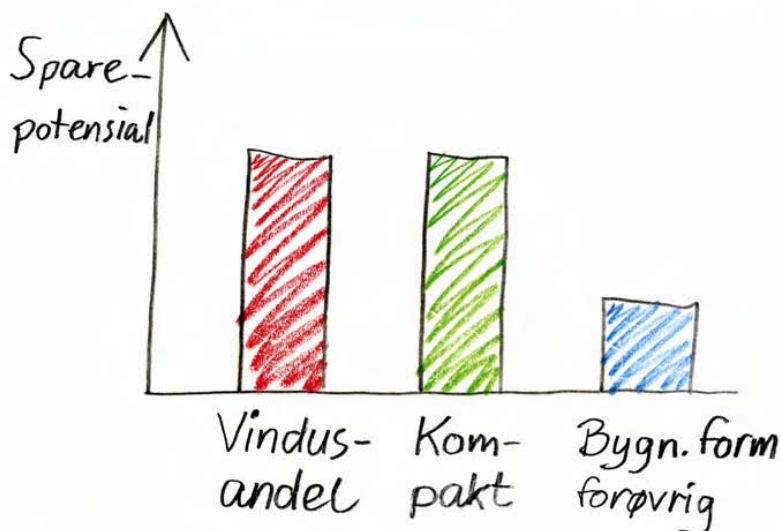 Spare-
potensial
Vindus-
andel
Kom-
pakt
Bygn. form
forøvrig